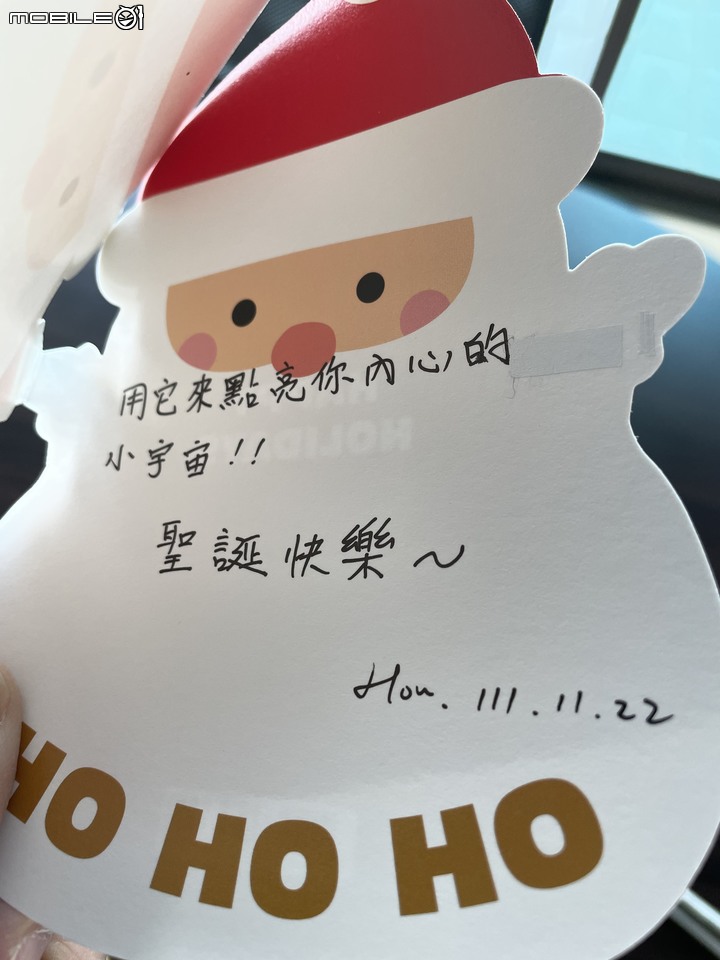 MOBILE01
用它來點亮你內心的
小宇宙!!
聖誕快樂~
Hou. 111.11.22
HO HO HO